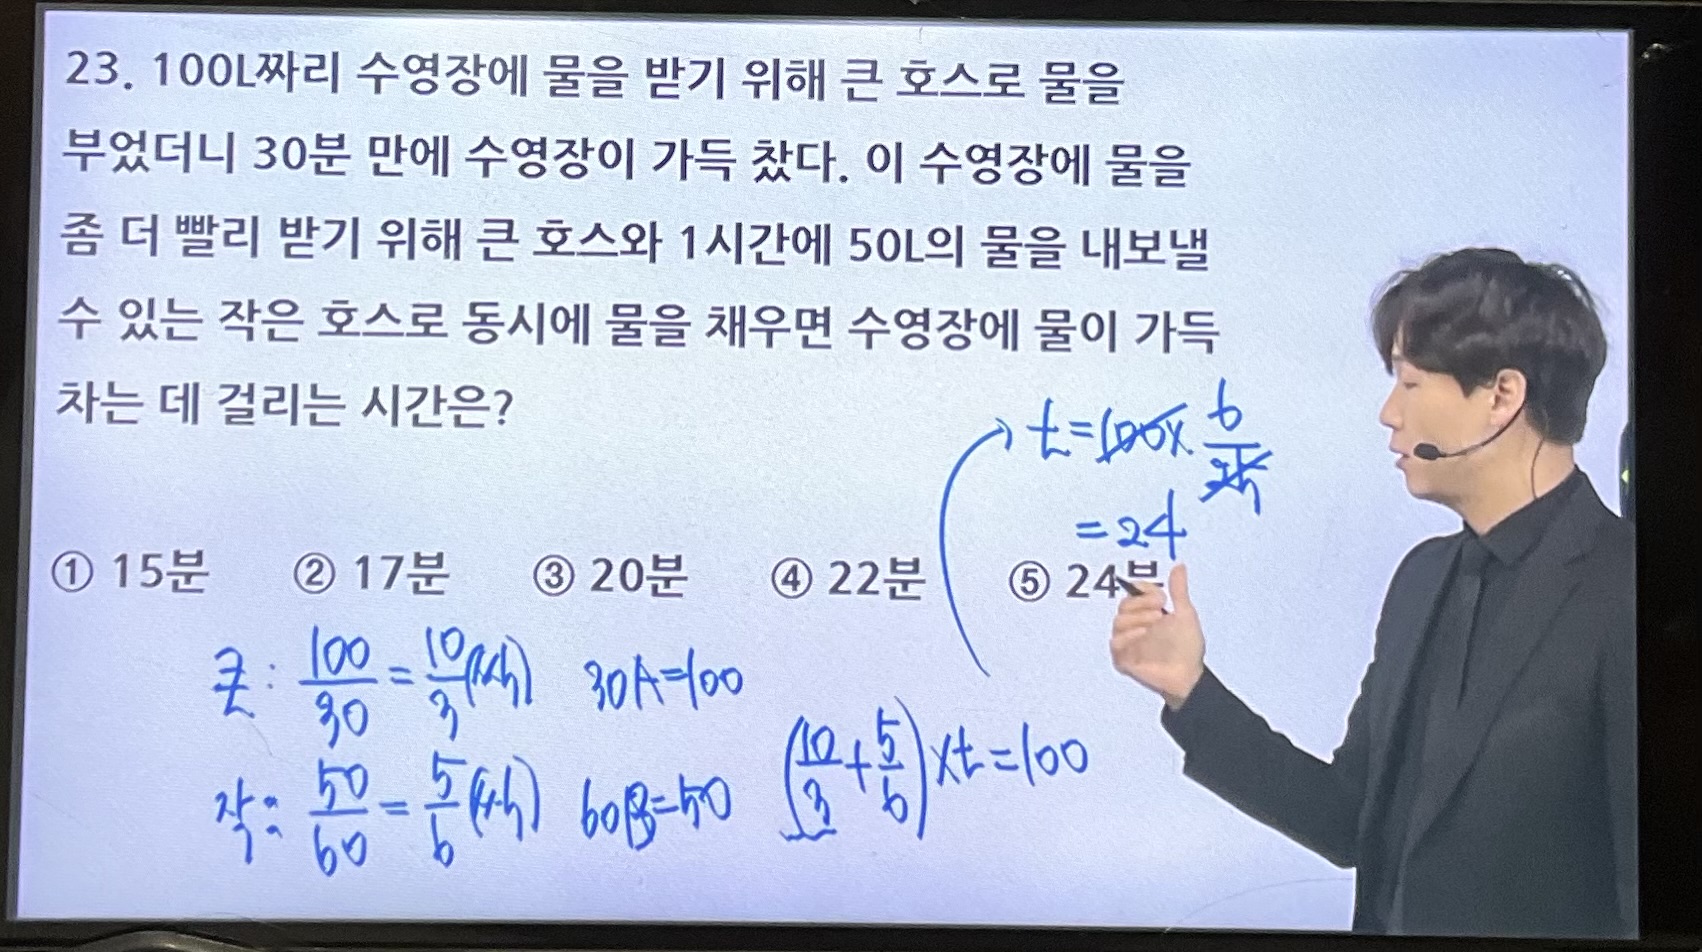 23. 100L짜리 수영장에 물을 받기 위해 큰 호스로 물을
부었더니 30분 만에 수영장이 가득 찼다. 이 수영장에 물을
좀 더 빨리 받기 위해 큰 호스와 1시간에 50L의 물을 내보낼
수 있는 작은 호스로 동시에 물을 채우면 수영장에 물이 가득
차는 데 걸리는 시간은?
t=100× 6/25
=24
① 15분 ② 17분 ③ 20분 ④ 22분 ⑤ 24분
큰: 100/30 = 10/3 30A=100
작: 50/60 = 5/6 60B=50
(10/3+5/6)×t=100